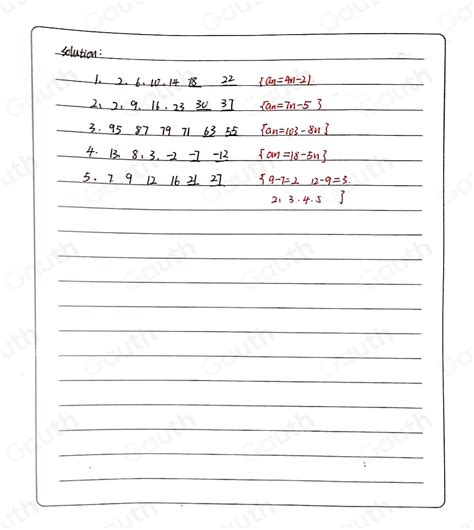 solution:
1. 2. 6. 10. 14 18 22 {an=4n-2}
2. 2. 9. 16. 23 30 37 {an=7n-5}
3. 95 87 79 71 63 55 {an=103-8n}
4. 13. 8. 3. -2 -7 -12 {an=18-5n}
5. 7 9 12 16 21 27 {9-7=2 12-9=3.
2. 3. 4. 5 }